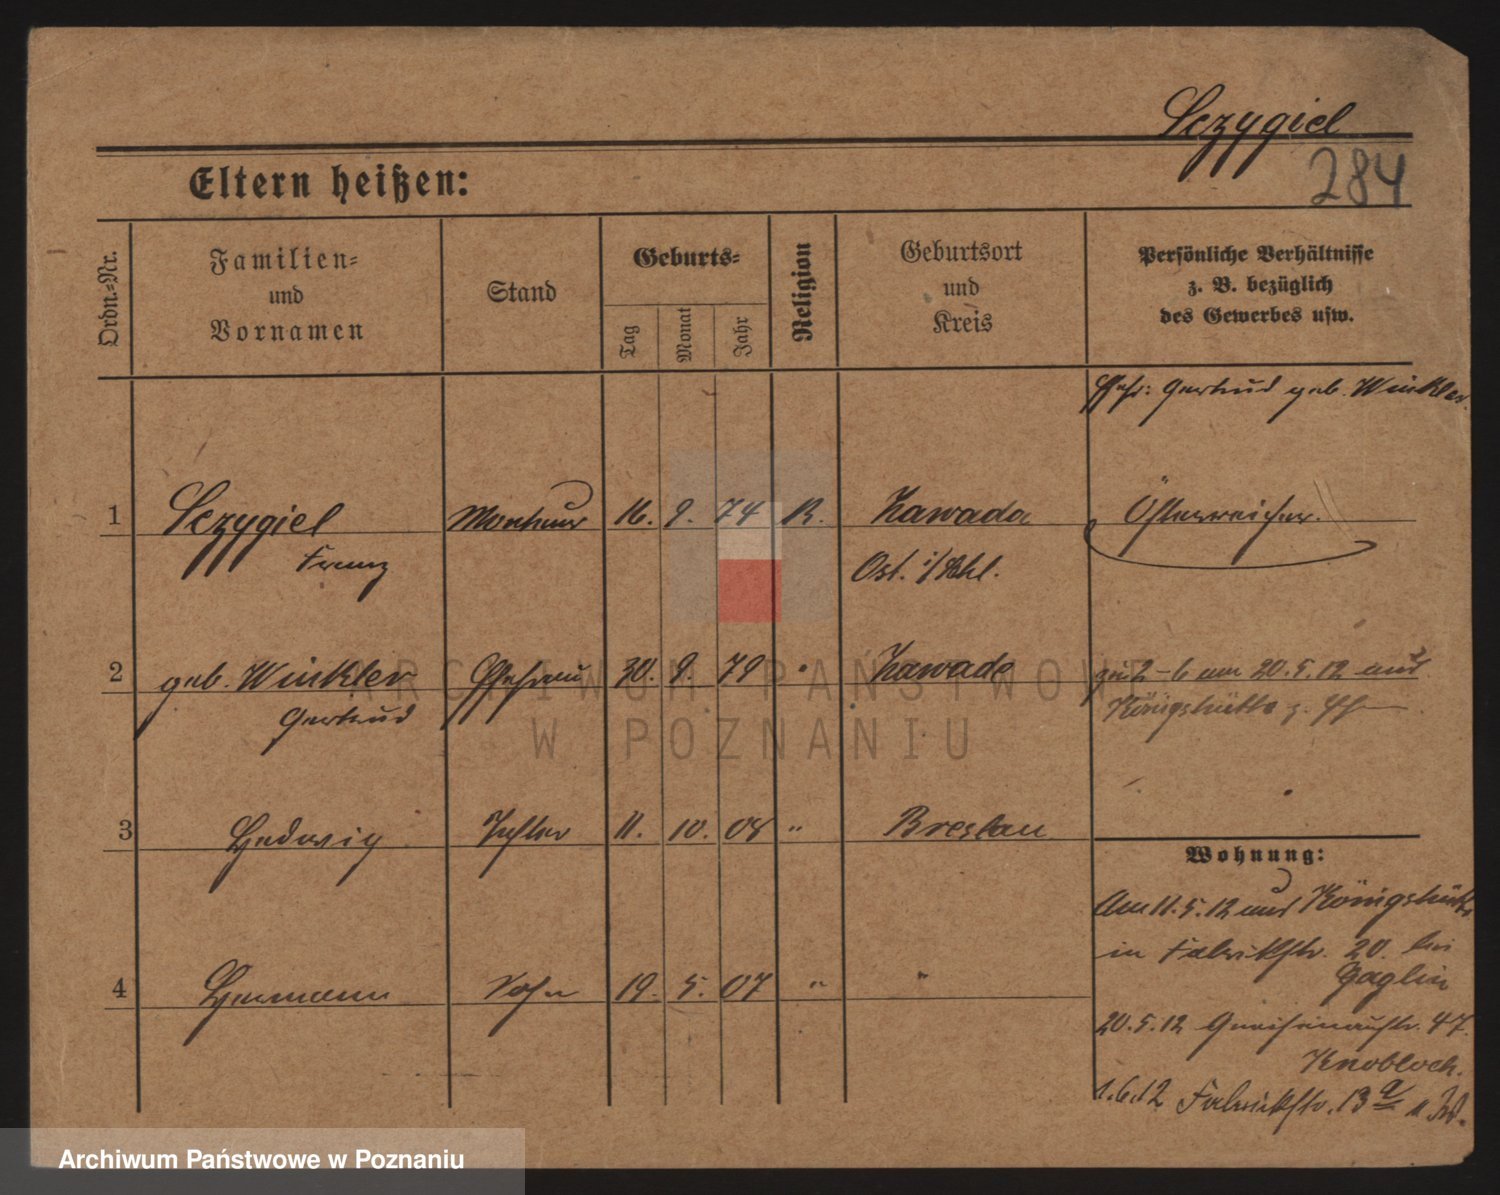 Sczygiel
284
Eltern heißen:
Ordn.-Nr.
Familien-
und
Vornamen
Stand
Geburts-
Tag
Monat
Jahr
Religion
Geburtsort
und
Kreis
Persönliche Verhältnisse
z. B. bezüglich
des Gewerbes usw.
Ehefr: Gertrud geb. Winkler.
1 Sczygiel Monteur 16. 9. 74 R. Zawada Österreicher.
Franz Ost. i/
2 geb. Winkler Ehefrau 30. 9. 79 " Zawada zu 2-6 am 20.5.12 aus
Gertrud Königshütte z.
3 Hedwig Tochter 11. 10. 08 " Breslau
Wohnung:
Am 11.5.12 aus Königshütte
in Fabrikstr. 20. bei
Gaglin
4 Hermann Sohn 19. 5. 07 " "
20.5.12 Gneisenaustr. 47.
Knobloch.
1.6.12 Fabrikstr. 13 a
ARCHIWUM PAŃSTWOWE
W POZNANIU
Archiwum Państwowe w Poznaniu